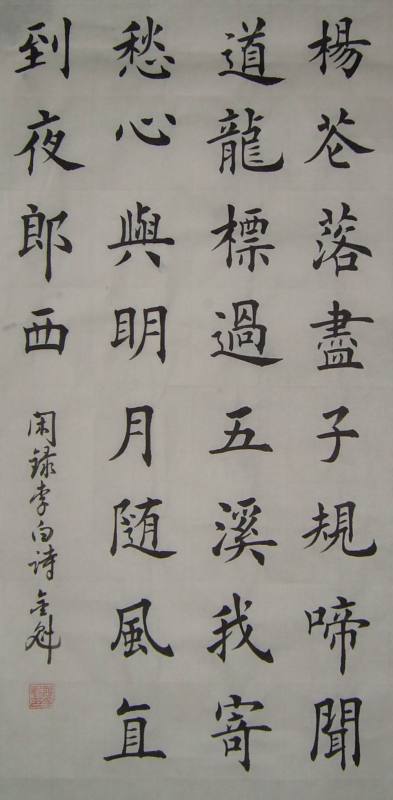 楊花落盡子規啼聞
道龍標過五溪我寄
愁心與明月随風直
到夜郎西
闲録李白诗金魁